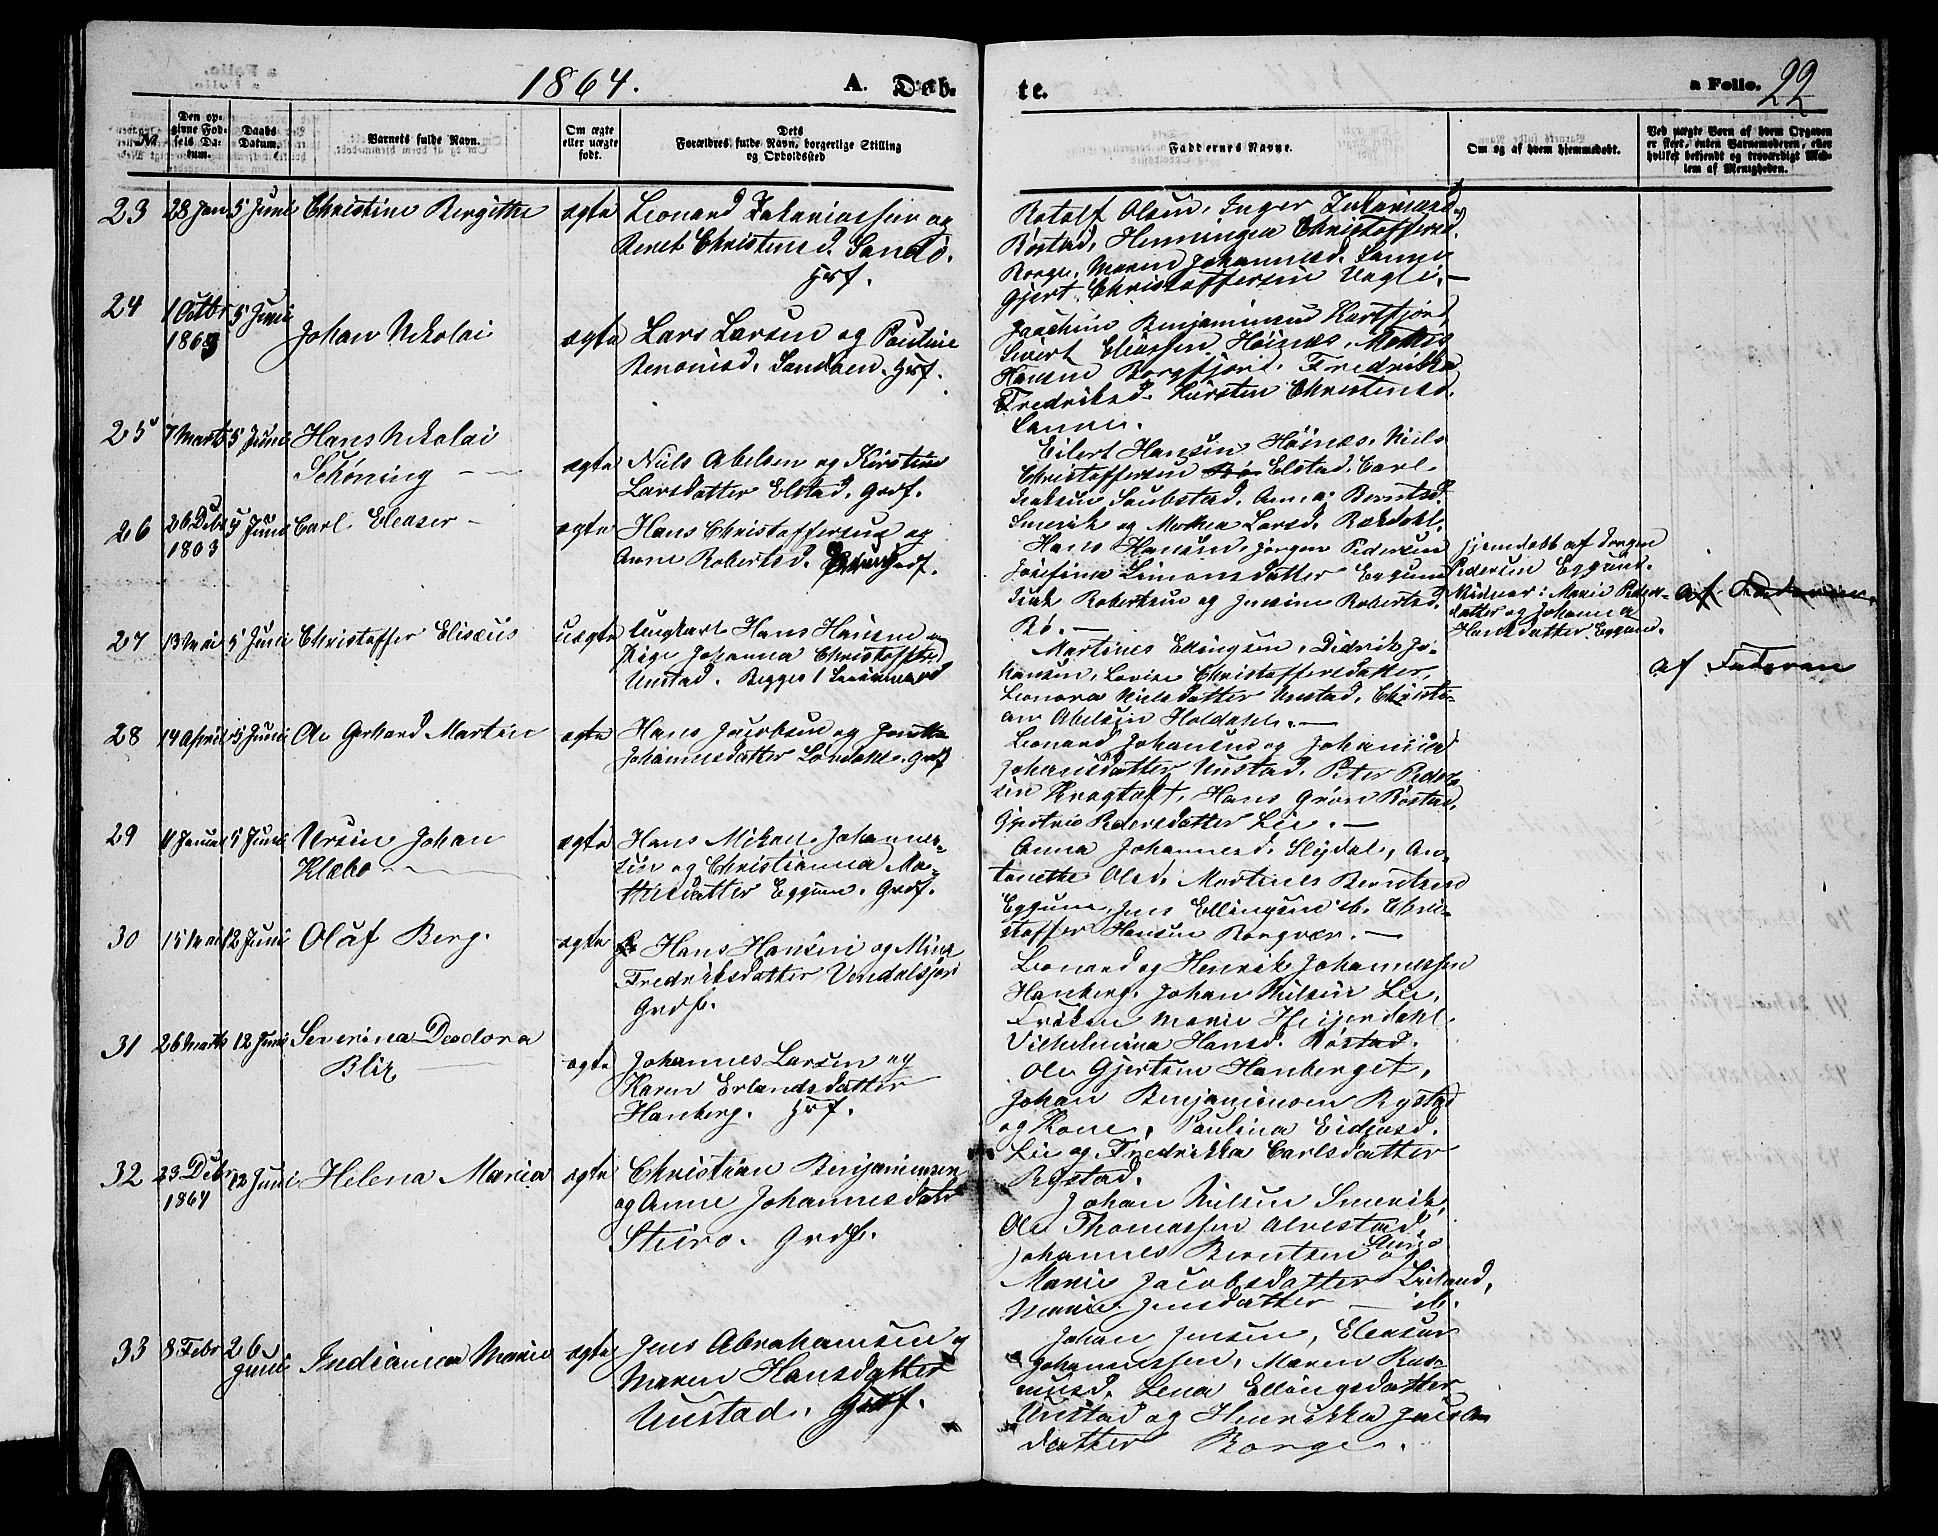 1864. A. Døb-
te. a Folio. 22
№
Den op-
givne Fød-
sels Da-
tum.
Daabs
Datum.
Barnets fulde Navn.
Om ægte
eller uægte
født.
Dets
Forældres fulde Navn, borgerlige Stilling
og Opholdssted
Faddernes Navne.
Om og af hvem hjemmedøbt.
Ved uægte Børn af hvem Opgaven
er skeet, enten Barnemoderen, eller
hvilket bekjendt og troværdigt Med-
lem af Menigheden.
23 28 Jan 5 Juni Christine Bergitha ægte Leonard Zakariassen og
Beret Christensd. Sand
Hrf.
Rotolf Olsen, Inger Zakariasd
Røstad, Henningea Christoffersd.
Borge, Maren Johannesd.
Gjert Christoffersen
24 1 Octbr
1863
5 Juni Johan Nikolai ægte Lars Larsen og Pauline
Benonisd. Sanden. Hrf.
Joachim Benjaminsen Kartfjord
Sivert Eliassen Høinæs, Mathis
Hansen Borgfjord, Fredrikka
Fredriksd. Kirsten Christensd.
25 7 Marts 5 Juni Hans Nikolai
Schøning
ægte Niels Abelsen og Kirstine
Larsdatter Elstad. Grdf.
Eilert Hansen Høinæs, Niels
Christoffersen Elstad, Carl
Isaksen Anna Berntsd.
Smerik og Mothea Larsd.
26 26 Debr
1863
5 Juni Carl Eleaser ægte Hans Christoffersen og
Anne Robertsd. Grdf.
Hans Hansen, Jørgen Pedersen
Josefina Simonsdatter Eggum
Isak Robertsen og Robertsd.
Bø.
hjemdøbt af Jørgen
Pedersen Eggum.
Vidner: Marie Peders-
datter og Johanna
Hansdatter Eggum.
af Faderen.
27 13 Mai 5 Juni Christoffer Elisæus uægte Ungkarl Hans Hansen og
Pige Johanna Christoffersd
Unstad. Begges 1 Leiermaal
Martines Ellingsen, Didrik Jo-
hansen, Lovise Christoffersdatter,
Leonora Nielsdatter Unstad, Christi-
an Abelsen Holdahl.
af Faderen
28 14 April 5 Juni Ole Gerhard Martin ægte Hans Jacobsen og
Johannesdatter Grdf
Leonard Johansen og Johanna
Johansdatter Unstad, Peter Peder-
sen Hans Grøn Røstad,
Pedersdatter Lie.
29 Januar 5 Juni Ursin Johan
Klæbo
ægte Hans Mikal Johannes-
sen og Christianna Ma-
thisdatter Eggum. Grdf.
Anna Johannesd. An-
tonette Olsd. Martines Berntsen
Eggum, Jens Ellingsen ib. Chri-
stoffer Hansen Borgvær.
30 15 Mai 12 Juni Olaf Berg. ægte Hans Hansen og Mina
Fredriksdatter Vendalsjord
Grdf.
Leonard og Henrik Johannessen
Hanberg, Johan Nielsen Lie,
Marie Heijerdahl
Vilhelmina Hansd. Røstad.
31 26 Marts 12 Juni Severina Deodora
Blix
ægte Johannes Larsen og
Karen Erlandsdatter
Hanberg. Hrf.
Ole Gjertsen Hanberget,
Johan Benjaminsen Rystad
og Kone, Paulina
Lie og Fredrikka Carlsdatter
Rystad.
32 23 Debr
1864
12 Juni Helena Maria ægte Christian Benjaminsen
og Anne Johannesdatr
Steiro. Grdf.
Johan Nielsen Smerik,
Ole Thomassen Alvestad,
Johannes Berntsen Steiro og
Marie Jacobsdatter
Marie Jensdatter — ib.
33 8 Febr 26
Juni
Indianna Marie ægte Jens Abrahamsen og
Maren Hansdatter
Unstad. Grdf.
Johan Jensen, Eleasar
Johannessen, Maren Ras-
musd. Lena Ellingsdatter
Unstad og Henrikka Jacobs
datter Borge.